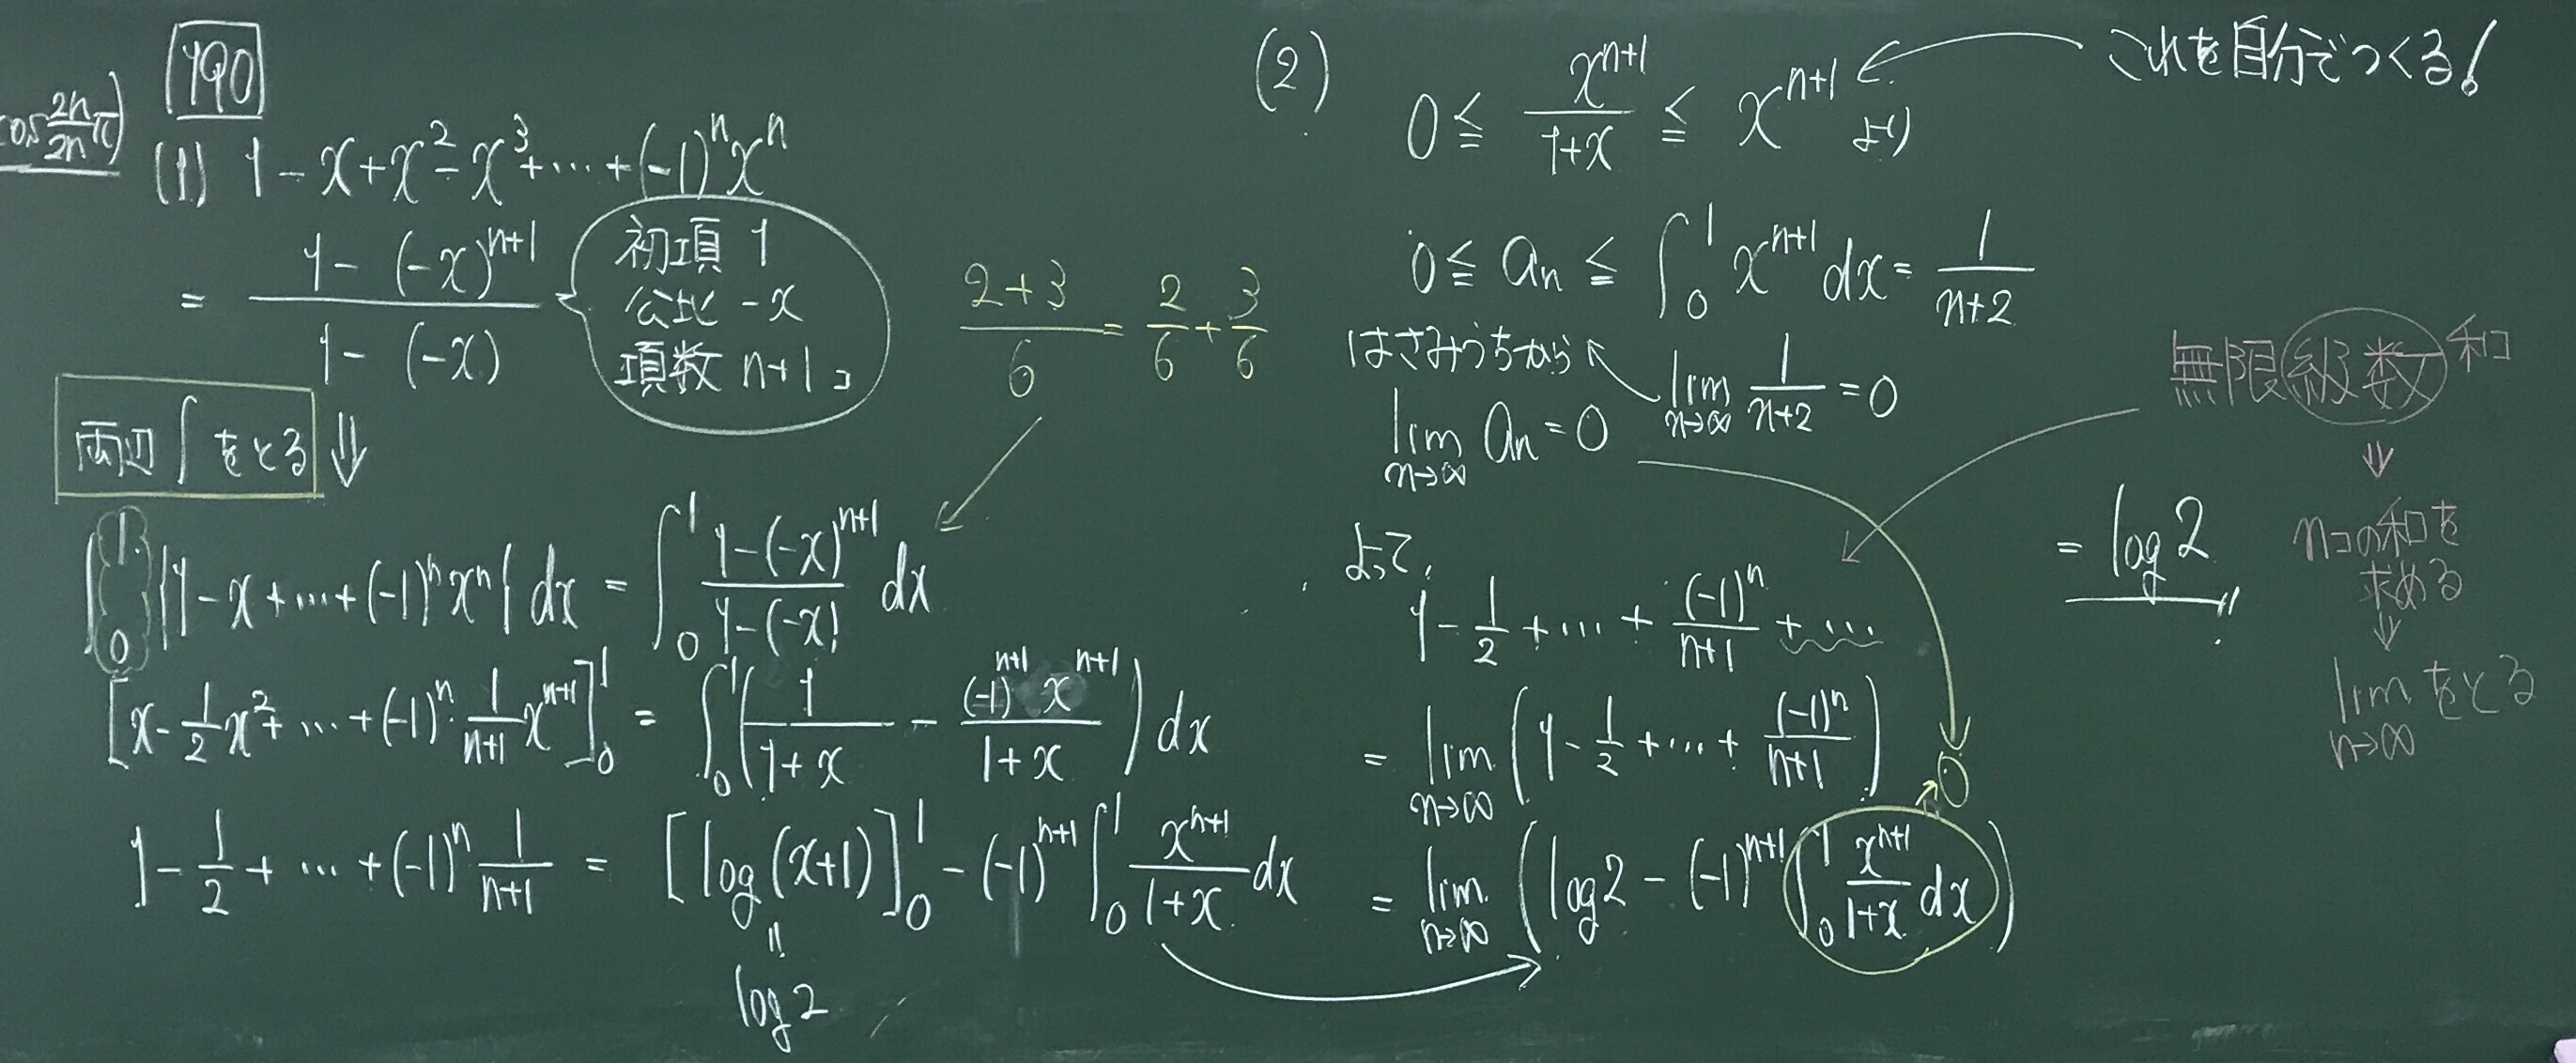 cos 2n/2n π)
190
(1) 1 - x + x² - x³ + … + (-1)ⁿxⁿ
= (1 - (-x)ⁿ⁺¹)/(1 - (-x))
初項 1
公比 -x
項数 n+1コ
(2+3)/6 = 2/6 + 3/6
両辺∫をとる ⇓
∫₀¹{1 - x + … + (-1)ⁿxⁿ}dx = ∫₀¹ (1 - (-x)ⁿ⁺¹)/(1 - (-x)) dx
[x - 1/2 x² + … + (-1)ⁿ · 1/(n+1) xⁿ⁺¹]₀¹ = ∫₀¹(1/(1+x) - (-1)ⁿ⁺¹xⁿ⁺¹/(1+x))dx
1 - 1/2 + … + (-1)ⁿ 1/(n+1) = [log(x+1)]₀¹ - (-1)ⁿ⁺¹∫₀¹ xⁿ⁺¹/(1+x) dx
‖
log2
(2)
0 ≦ xⁿ⁺¹/(1+x) ≦ xⁿ⁺¹ より
← これを自分でつくる!
0 ≦ aₙ ≦ ∫₀¹ xⁿ⁺¹dx = 1/(n+2)
はさみうちから
lim n→∞ 1/(n+2) = 0
lim n→∞ aₙ = 0
よって,
1 - 1/2 + … + (-1)ⁿ/(n+1) + …
= lim n→∞ (1 - 1/2 + … + (-1)ⁿ/(n+1))
0
= lim n→∞ (log2 - (-1)ⁿ⁺¹∫₀¹ xⁿ⁺¹/(1+x) dx)
= log2
無限級数 和
⇓
nコの和を
求める
↓
lim n→∞ をとる